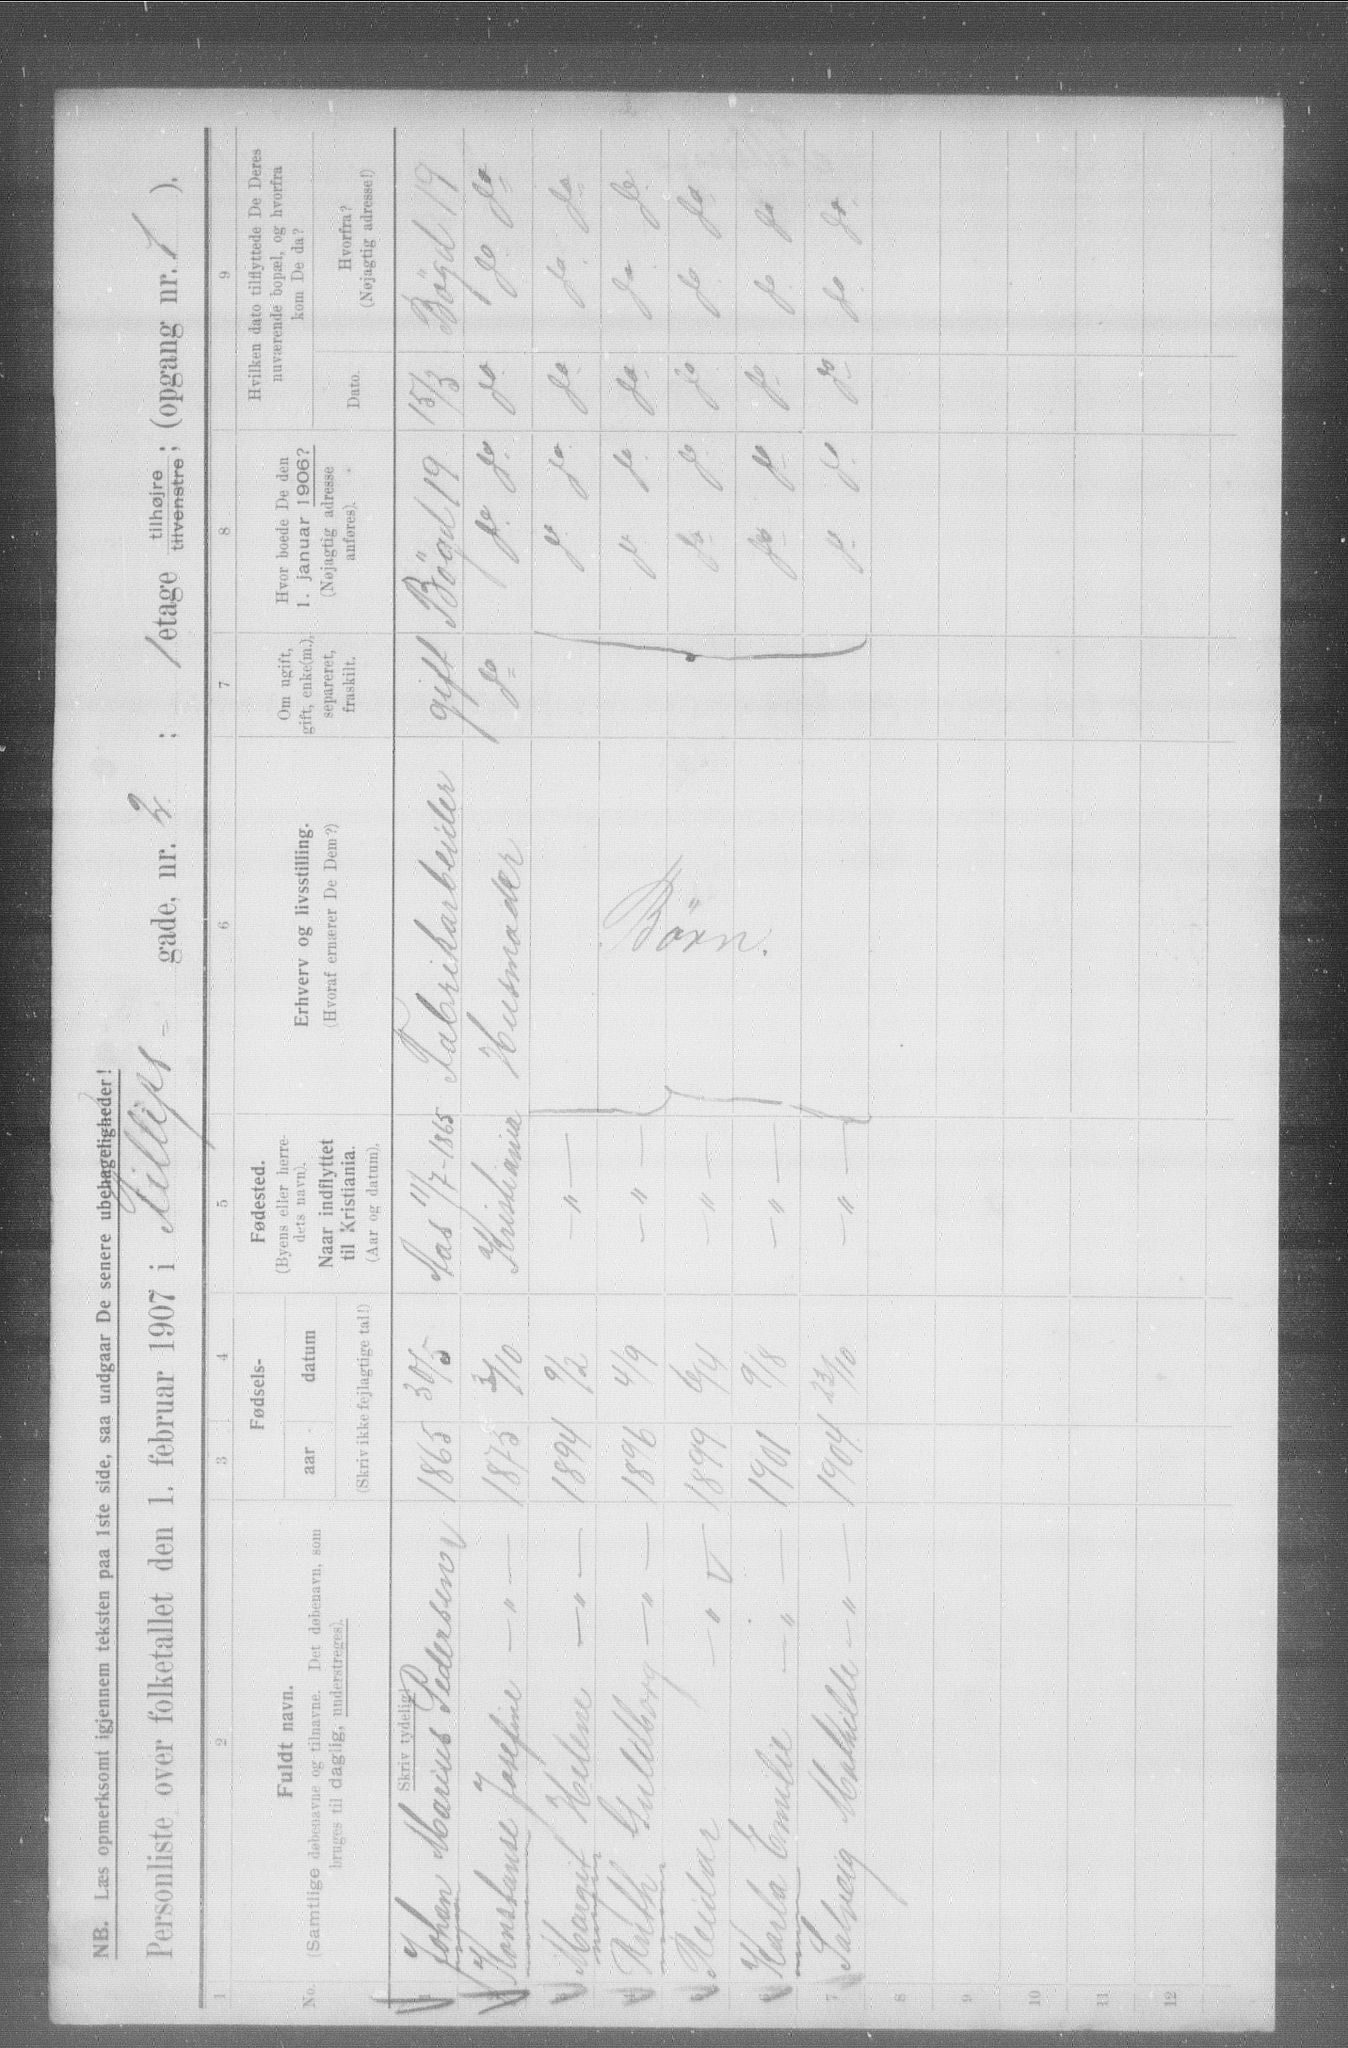 NB. Læs opmerksomt igjennem teksten paa 1ste side, saa undgaar De senere ubehageligheder!
Personliste over folketallet den 1. februar 1907 i Tillips- gade, nr. 2 ; 1 etage tilhøjre tilvenstre; (opgang nr. 1 ).
1 2 3 4 5 6 7 8 9
No.
Fuldt navn.
(Samtlige døbenavne og tilnavne. Det døbenavn, som
bruges til daglig, understreges).
Skriv tydelig!
Fødsels-
aar datum
(Skriv ikke fejlagtige tal!)
Fødested.
(Byens eller herre-
dets navn).
Naar indflyttet
til Kristiania.
(Aar og datum).
Erhverv og livsstilling.
(Hvoraf ernærer De Dem?)
Om ugift,
gift, enke(m.),
separeret,
fraskilt.
Hvor boede De den
1. januar 1906?
(Nøjagtig adresse
anføres).
Hvilken dato tilflyttede De Deres
nuværende bopæl, og hvorfra
kom De da?
Dato.
Hvorfra?
(Nøjagtig adresse!)
1 Johan Marius Pedersen 1865 30/5 Aas 11/7-1865 Fabrikarbeider gift Bögd 19 15/3 Bögd 19
2 Konstanse Josefine —„— 1875 3/10 Kristiania Husmoder do do do do do do
3 Margit Helene —„— 1894 9/2 —„— do do do do do
4 Ruth Guldborg —„— 1896 4/9 —„— Börn. do do do do do
5 Reidar —„— 1899 6/4 —„— do do do do do
6 Karla Emilie —„— 1901 9/8 —„— do do do do do
7 Solveig Mathilde —„— 1904 23/10 —„— do do do do do
8
9
10
11
12